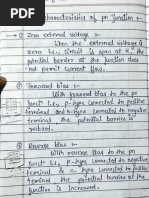 characteristics of pn junction :-
① Zero external voltage :-
When the external voltage is
zero i.e., circuit is open at K, the
potential barrier at the junction does
not permit current flow.
② Forward bias :-
With forward bias to the pn
junctn i.e., p-type connected to positive
terminal and n-type connected to negative
terminal, the potential barrier is
reduced.
③ Reverse bias :-
With reverse bias to the pn
junctn i.e., p-type connected to negative
terminal & n-type connected to positive
terminal the potential barrier at the
junction is increased.